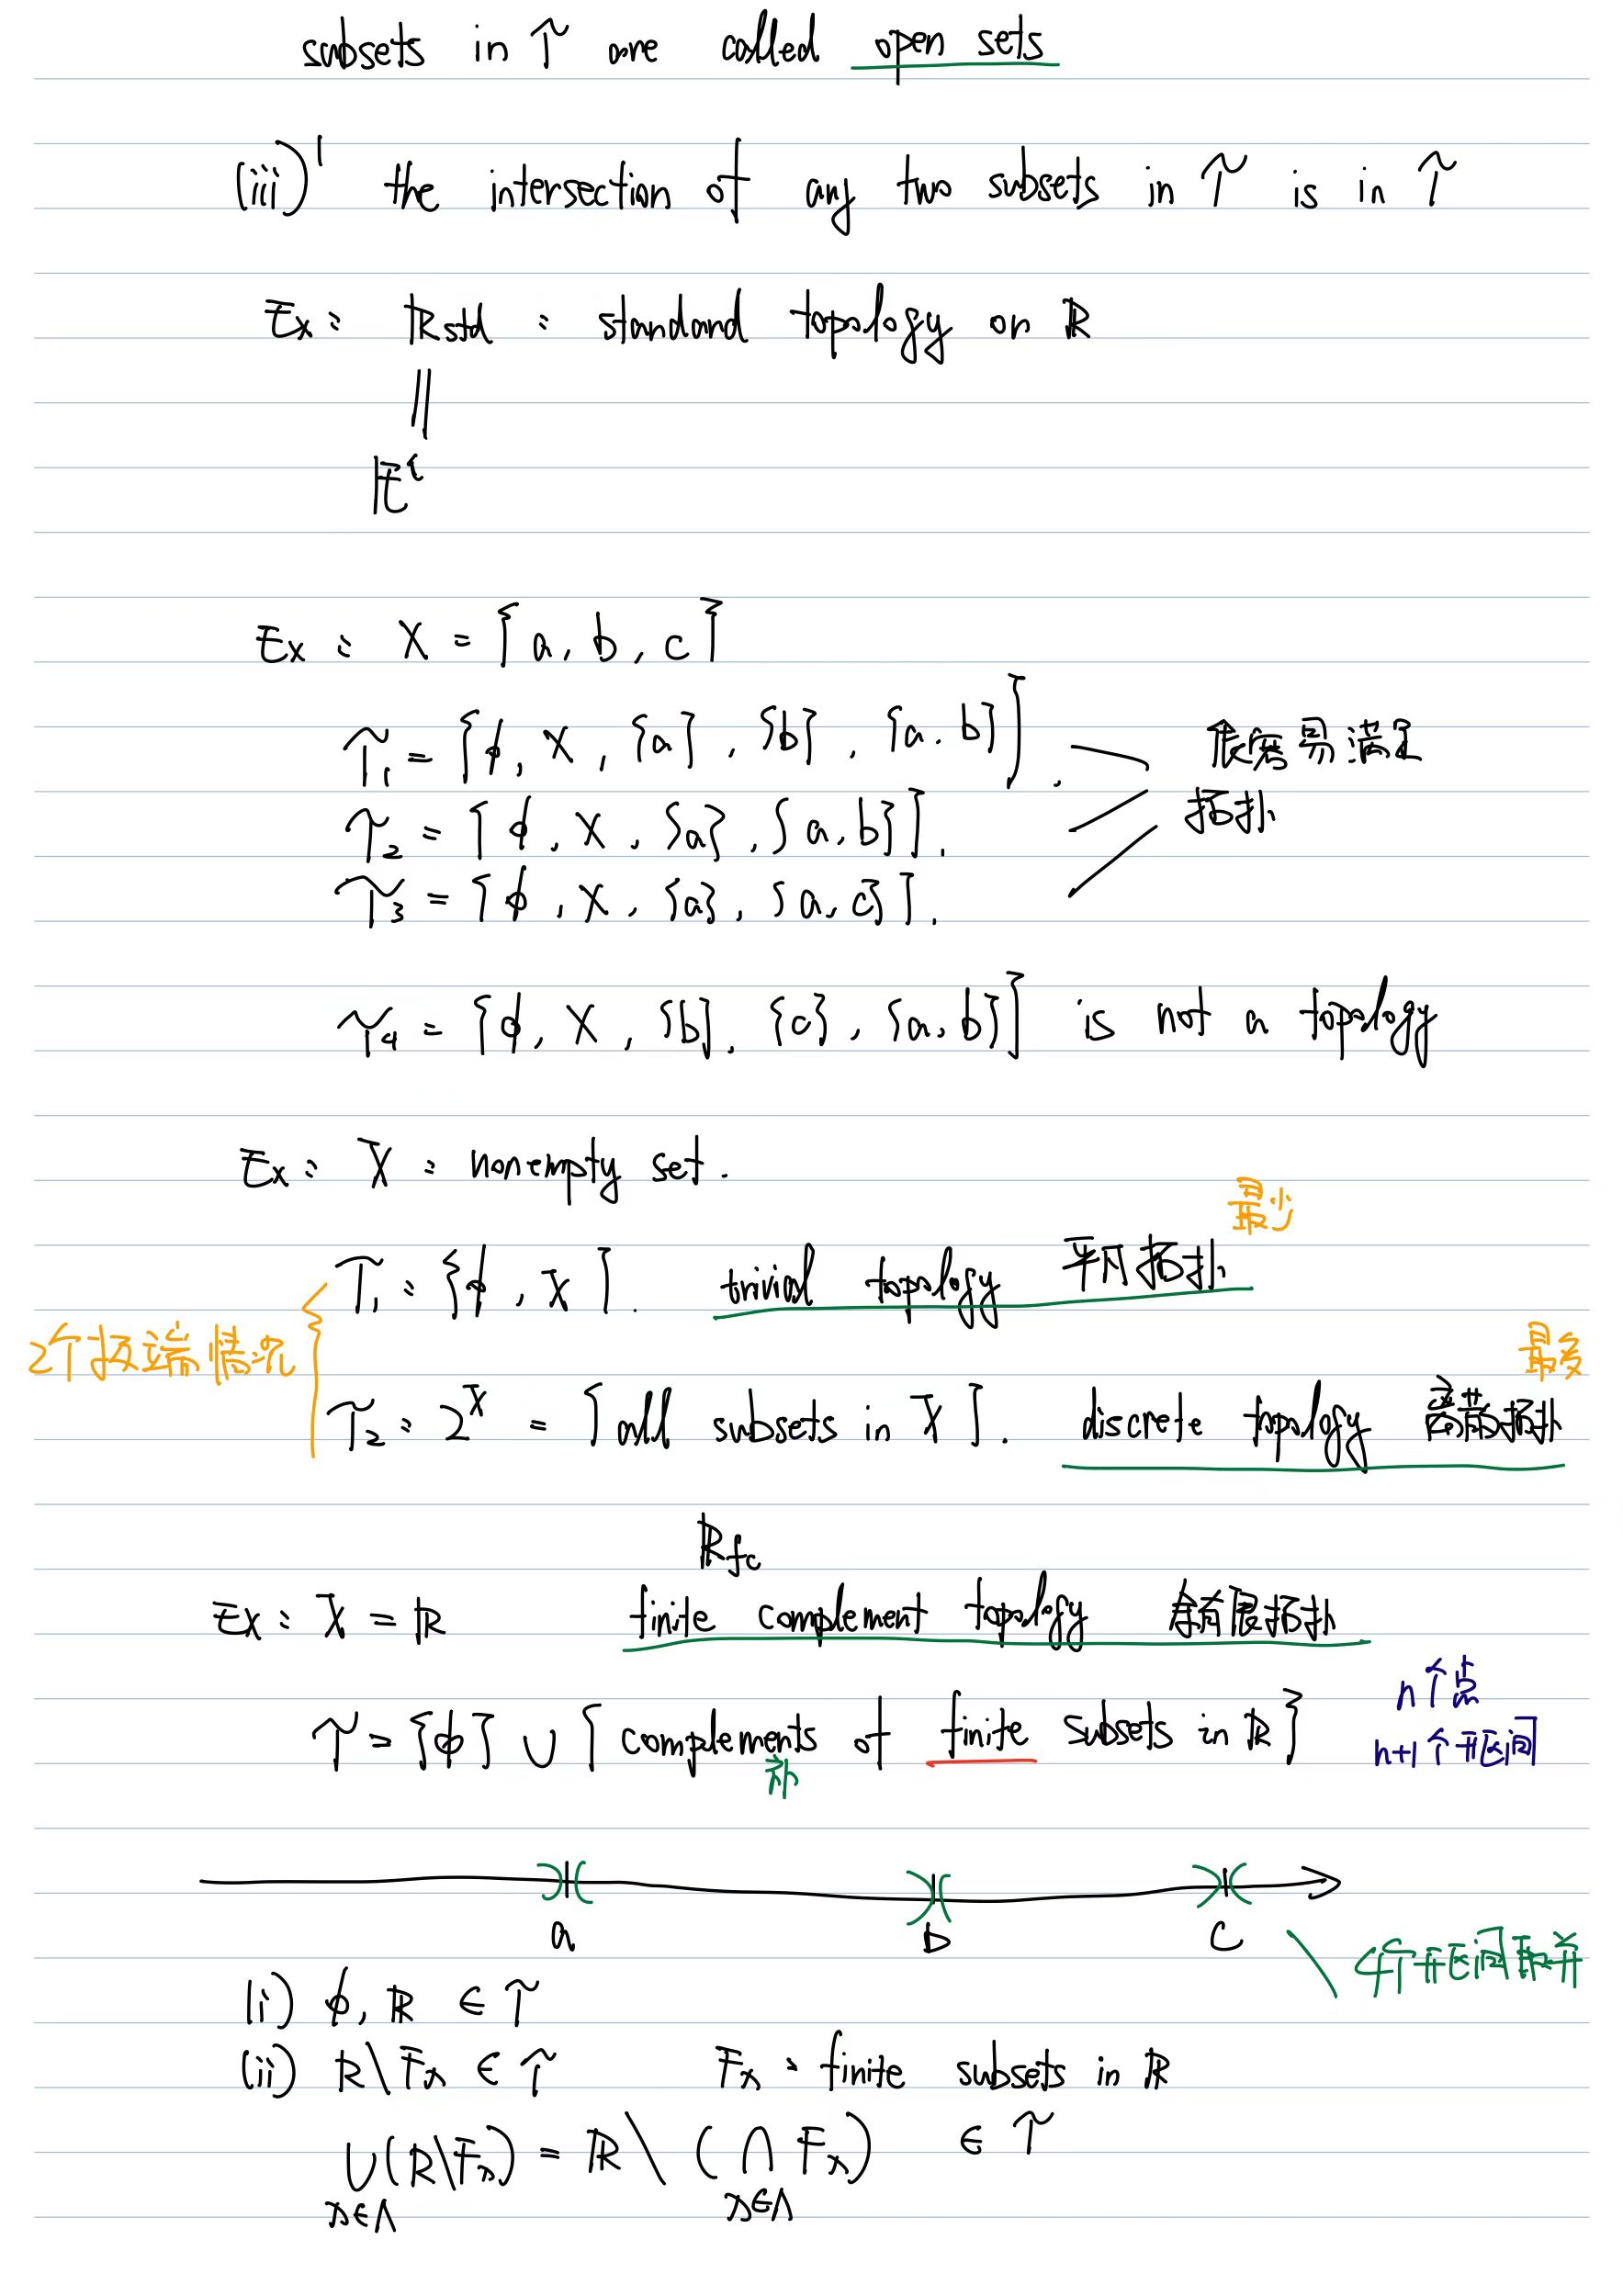 subsets in τ are called open sets
(iii)' the intersection of any two subsets in τ is in τ
Ex: ℝstd : standard topology on ℝ
||
𝔼¹
Ex: X = {a, b, c}
τ₁ = {ϕ, X, {a}, {b}, {a, b}}.
τ₂ = {ϕ, X, {a}, {a, b}}.
τ₃ = {ϕ, X, {a}, {a, c}}.
很容易满足
拓扑
τ₄ = {ϕ, X, {b}, {c}, {a, b}} is not a topology
Ex: X : nonempty set.
最少
τ₁ : {ϕ, X}. trivial topology 平凡拓扑
2个极端情况
最多
τ₂ : 2^X = {all subsets in X}. discrete topology 离散拓扑
ℝfc
Ex: X = ℝ finite complement topology 余有限拓扑
n个点
τ = {ϕ} ∪ {complements of finite subsets in ℝ}
n+1个开区间
补
a b c
4个开区间取并
(i) ϕ, ℝ ∈ τ
(ii) ℝ\Fλ ∈ τ Fλ : finite subsets in ℝ
∪(ℝ\Fλ) = ℝ \ (∩ Fλ) ∈ τ
λ∈Λ λ∈Λ